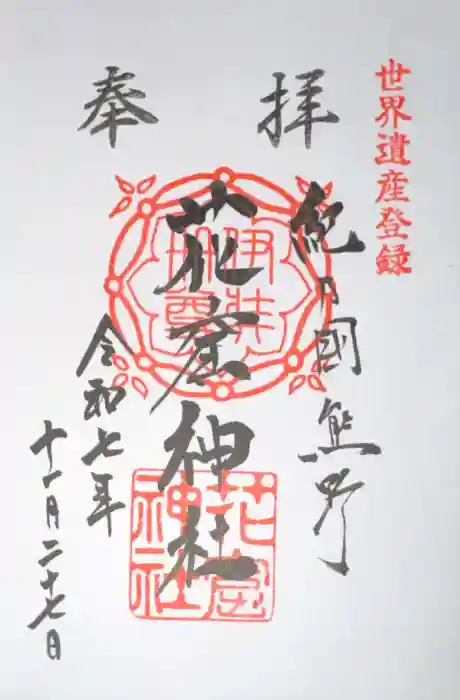 世界遺産登録
奉拝
紀乃國熊野
花窟神社
令和七年
十一月二十七日
花窟
神社